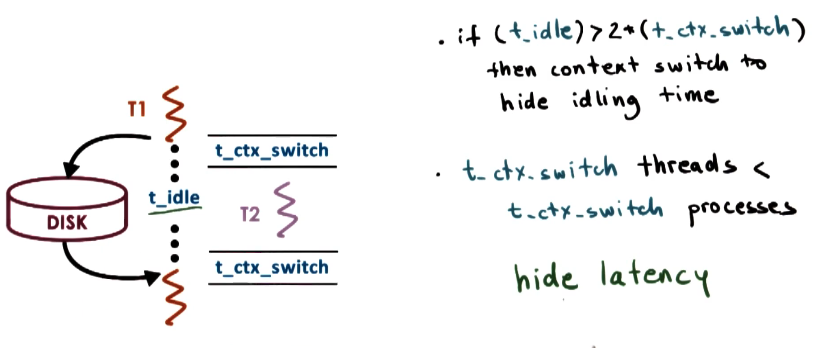 T1
t_ctx_switch
t_idle
DISK
T2
t_ctx_switch
. if (t_idle) > 2*(t_ctx_switch)
then context switch to
hide idling time
. t_ctx_switch threads <
t_ctx_switch processes
hide latency